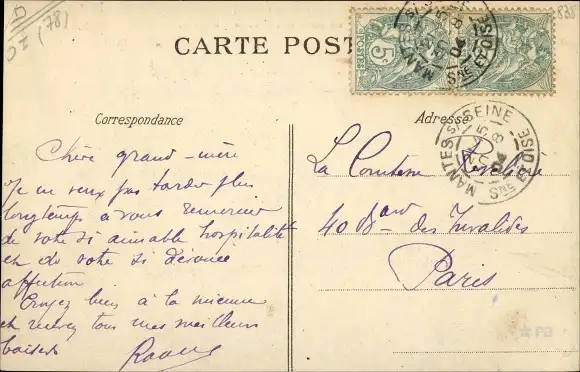 (78)
CARTE POST
POSTES
5c
MANTES S/ SEINE
SNE ET OISE
Correspondance
Adresse
Chère grand-mère
Je ne veux pas tarder plus
longtemps à vous remercier
de votre si aimable hospitalité
et de votre si dévouée
affection
Croyez bien à la mienne
et recevez tous mes meilleurs
baisers
Raoul
MANTES S/ SEINE
SNE ET OISE
La Comtesse
40 Bard des Invalides
Paris
PB